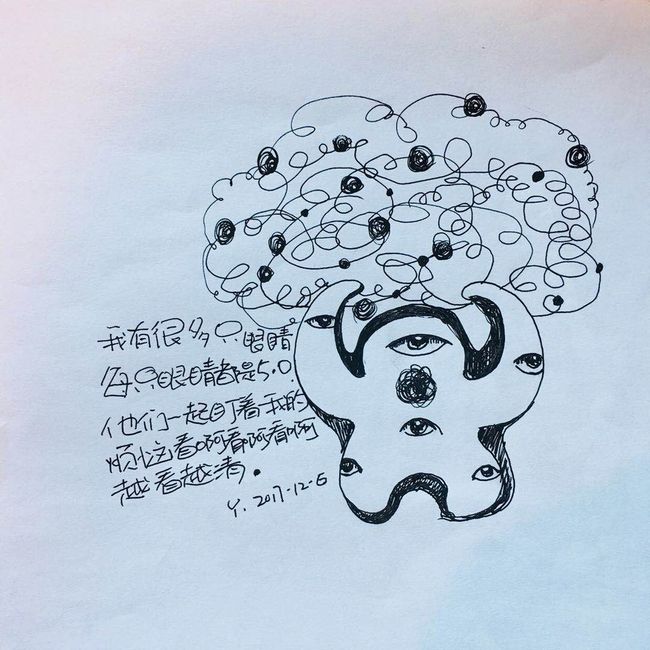 我有很多只眼睛
每只眼睛都是5.0
他们一起盯着我的
烦恼看啊看啊看啊
越看越清。
Y. 2017-12-6